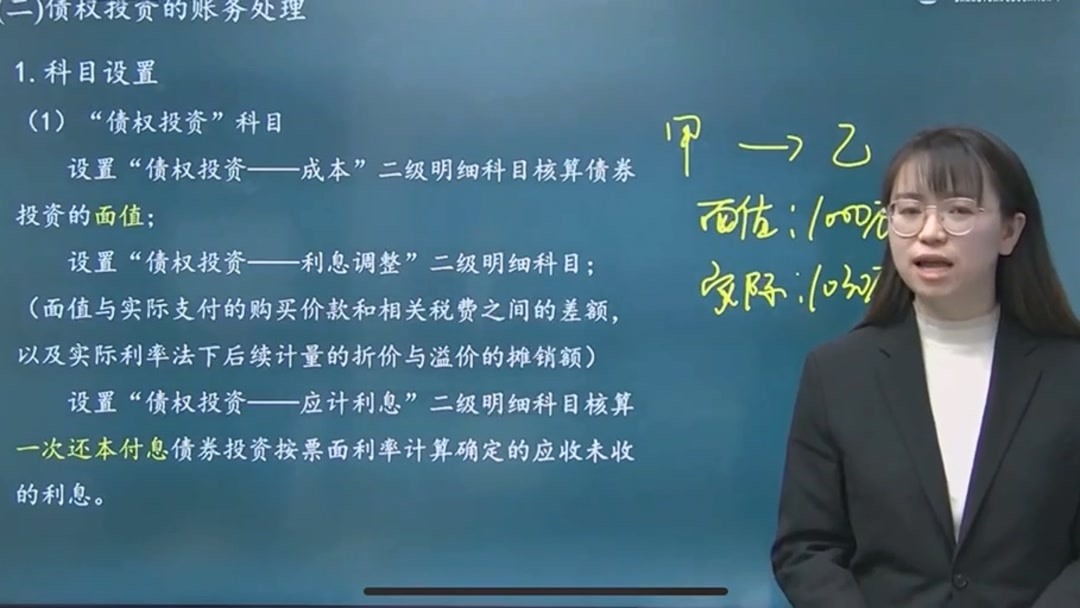 (二)债权投资的账务处理
1.科目设置
(1)“债权投资”科目
设置“债权投资——成本”二级明细科目核算债券
投资的面值;
设置“债权投资——利息调整”二级明细科目;
(面值与实际支付的购买价款和相关税费之间的差额,
以及实际利率法下后续计量的折价与溢价的摊销额)
设置“债权投资——应计利息”二级明细科目核算
一次还本付息债券投资按票面利率计算确定的应收未收
的利息。
甲 → 乙
面值:1000
实际:1030